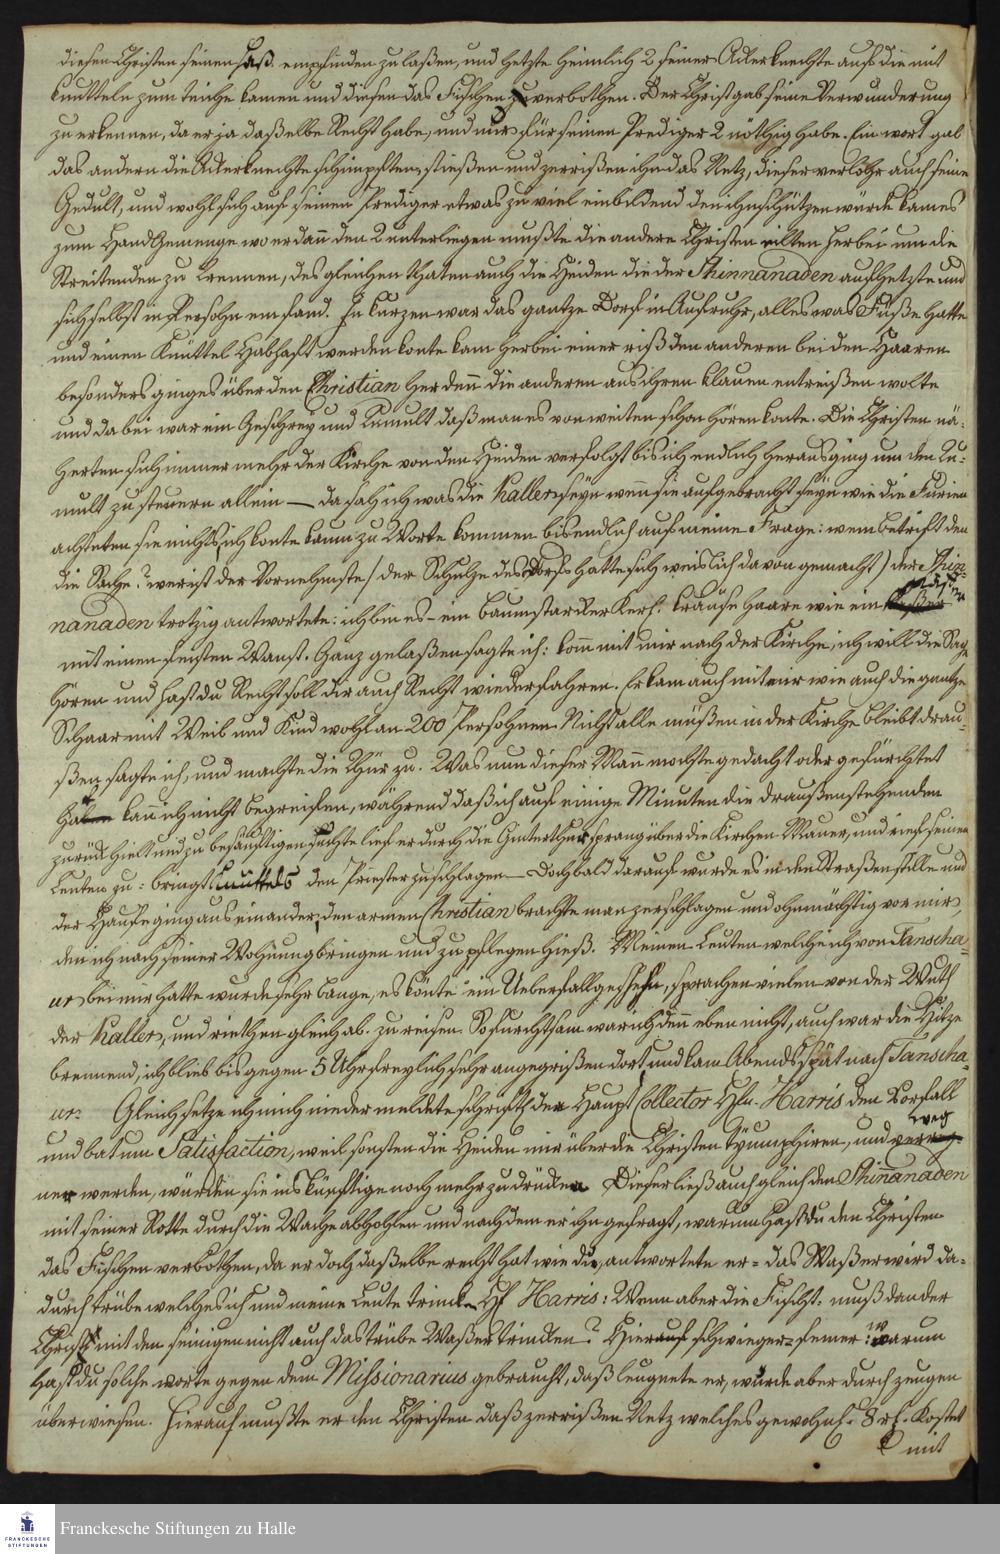 diesen Christen seinen Haß empfinden zu laßen, und hetzte heimlich 2 seiner Ackerknechte auf die mit
Knütteln zum Teiche kamen und diesen das Fischen verbothen. Der Christ gab seine Verwunderung
zu erkennen, da er ja daßelbe Recht habe, und nur für seinen Prediger 2 nöthig habe. Ein wort gab
das andern die Ackerknechte schimpften, stießen und zerrißen ihm das Netz, dieser verlohr auch seine
Gedult, und wohl sich auf seinen Prediger etwas zu viel einbildend den ihn schützen würde kam es
zum Handgemenge wo er dañ den 2 unterliegen mußte die andere Christen eilten herbei um die
Streitenden zu trennen, desgleichen thaten auch die Heiden die der Shinnanaden aufhetzte und
sich selbst in Persohn einfand. In kurzen war das gantze Dorf in Aufruhr, alles was Füße hatte
und einen Knüttel habhaft werden konte kam herbei einer riß den anderen bei den Haaren
besonders ging es über den Christian her denn die anderen aus ihren Klauen entreißen wolte
und dabei war ein Geschrey und Tumult daß man es von weiten schon hören konte. Die Christen nä-
herten sich immer mehr der Kirche von den Heiden verfolgt bis ich endlich herausging um den Tu-
mult zu steuern allein — da sah ich was die Kaller seyn wenn sie aufgebracht seyn wie die Furien
achteten sie nichts, ich konte kaum zu Worte kommen bis endlich auf meine Frage: wem betrift den
die Sache? wer ist der Vornehmste / der Schulze des Dorfs hatte sich weislich davon gemacht) der Shin-
nanaden trotzig antwortete: ich bin es – ein baumstarcker Kerl. krause Haare wie ein
mit einen feisten Wanst. Ganz gelaßen sagte ich: kom̃ mit mir nach der Kirche, ich will die Sache
hören und hast du Recht soll dir auch Recht wiederfahren. Er kam auch mit mir wie auch die gantze
Schaar mit Weib und Kind wohl an 200 Persohnen. Nicht alle müßen in der Kirche bleibt drau-
ßen sagte ich, und machte die Thür zu. Was nun dieser Mañ mochte gedacht oder gefürchtet
hat kañ ich nicht begreifen, während daß ich auf einige Minuten die draußenstehenden
zurück hielt und zu besänftigen suchte lief er durch die Hinterthur, sprang über die Kirchen Mauer, und rief seinen
Leuten zu: bringt Knüttels den Priester zu schlagen — Doch bald darauf wurde es in den Straßen stille und
der Haufe ging aus einander, den armen Christian brachte man zerschlagen und ohnmächtig vor mir,
den ich nach seiner Wohnung bringen und zu pflegen hieß. Meinen Leuten welche ich von Tanscha-
ur bei mir hatte wurde sehr bange, es könte ein Ueberfall geschehn, sprachen vielen von der Wuth
der Kaller, und riethen gleich ab zu reisen. So furchtsam war ich deñ eben nicht, auch war die Hitze
brennend, ich blieb bis gegen 5 Uhr freylich sehr angegrißen dort und kam Abends spät nach Tanscha-
ur. Gleich setze ich mich nieder meldete schriftl. den Haupt Collector H. Harris den Vorfall
und bat um Satisfaction, weil sonsten die Heiden mir über die Christen triumphiren, und weg
ner werden, würden sie ins künftige noch mehr zu drücken. Dieser ließ auch gleich den Shiñanaden
mit seiner Rotte durch die Wache abhohlen und nachdem er ihn gefragt, warum hast du den Christen
das Fischen verbothen, da er doch daßelbe recht hat wie du, antwortete er = das Waßer wird da-
durch trübe welches ich und meine Leute trincken H. Harris: Wenn aber die Fischst. muß dan der
Christ mit den seinigen nicht auch das trübe Waßer trincken? Hierauf schwieg er = ferner: warum
hast du solche worte gegen dem Missionarius gebraucht, daß leugnete er, wurde aber durch zeugen
überwiesen. Hierauf mußte er den Christen daß zerrißen Netz welches gewohnl. 8 rh. kostet
mit
Franckesche Stiftungen zu Halle
FRANCKESCHE
STIFTUNGEN